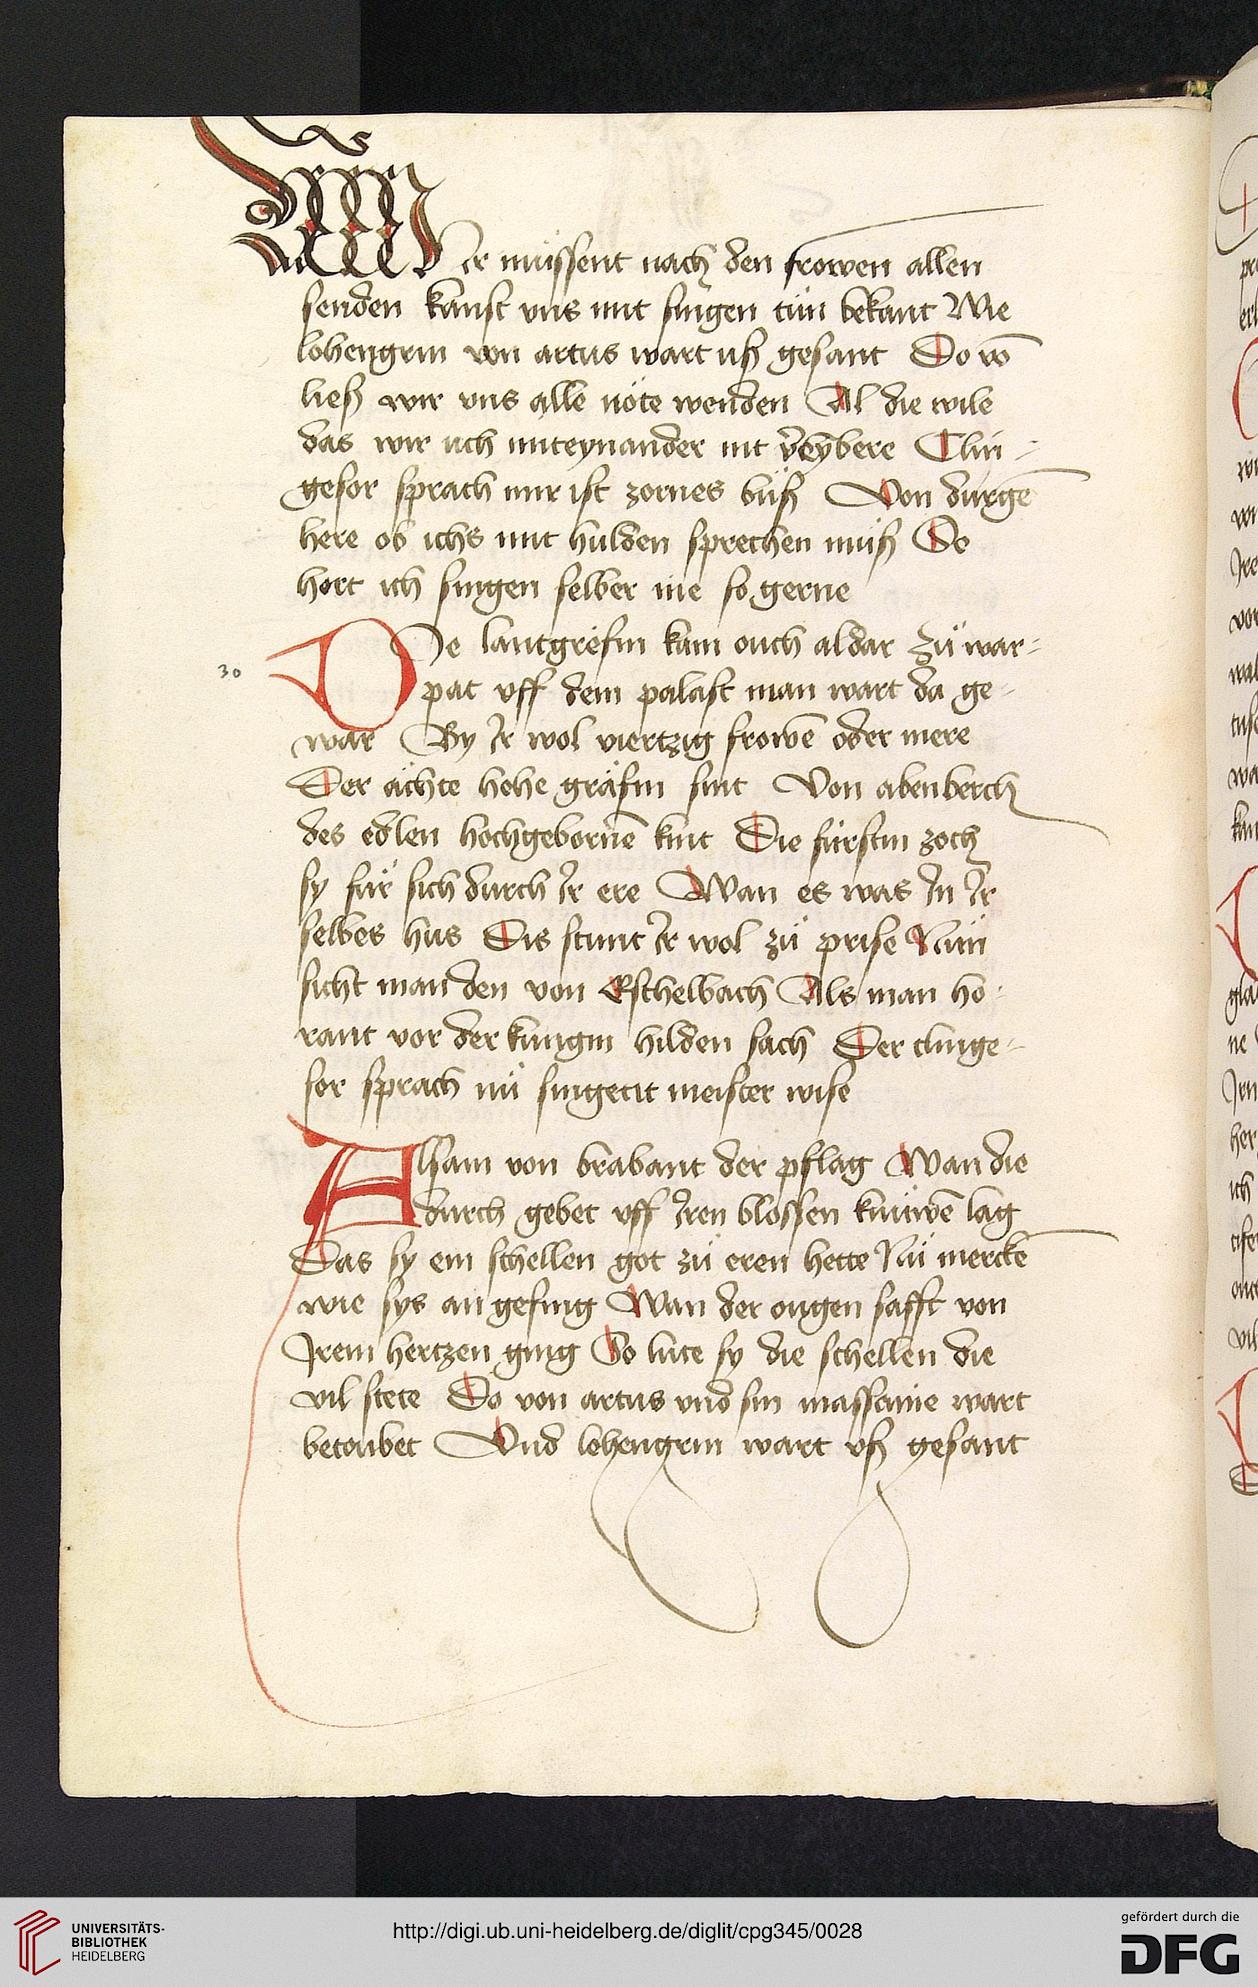 Wir müssent nach den frowen allen
senden kanst vns mit singen tün bekant Wie
lohengrin von artus wart uß gesant So wo
ließ wir vns alle nöte wenden Al die wile
das wir uch miteynander nit verbere Clin-
gesor sprach mir ist zornes büß Von durgē
here ob ichs mit hulden sprechen müß So
hort ich singen selber nie so gerne
30
De lantgrefin kam ouch aldar Zü war-
pat vff dem palast man wart da ge-
war By Ir wol viertzig frowē oder mere
Der ächte hohe gräfin sint Von abenberch
des edlen hochgebornē kint Die fürstin zoch
sy für sich durch Ir ere Wan es was In Ir
selbes hus Dis stunt Ir wol zü prise Nün
sicht man den von Eschelbach Als man ho-
rant vor der küngin hilden sach Der clinge-
sor sprach nü singent meister wise
Alsam von brabant der pflag Wan die
durch gebet vff Iren blossen knüwē lag
Das sy ein schellen got zü eren hette Nü merckē
wie sys an gefing Wan der ougen safft von
Irem hertzen ging So lute sy die schellen die
vil stete Do von artus vnd sin massanie wart
betoubet Vnd lohengrin wart vß gesant
UNIVERSITÄTS-
BIBLIOTHEK
HEIDELBERG
http://digi.ub.uni-heidelberg.de/diglit/cpg345/0028
gefördert durch die
DFG